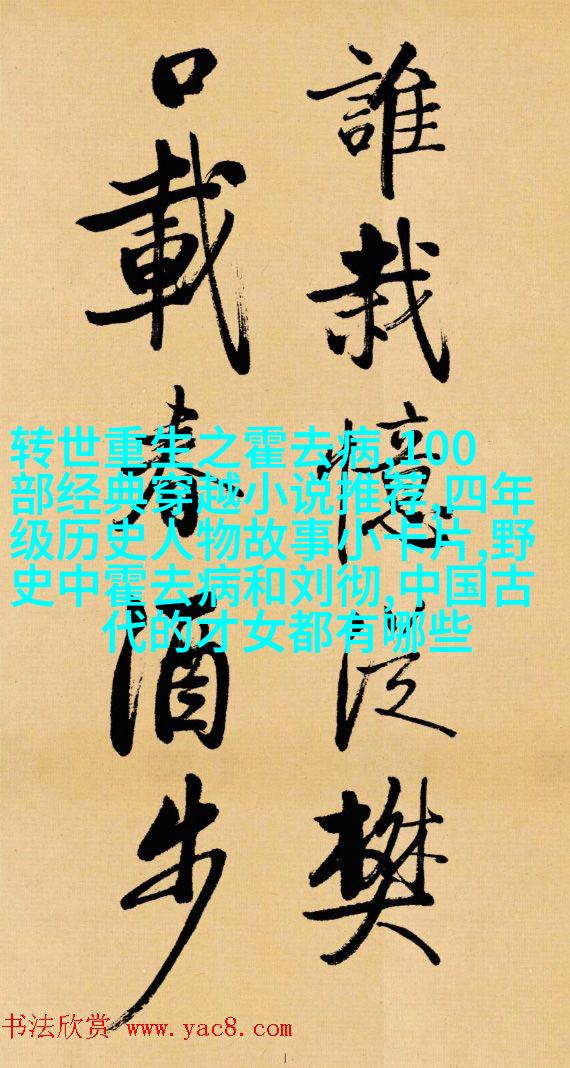 誰栽憶泛樊
口載春酒步
转世重生之霍去病,100
部经典穿越小说推荐,四年
级历史人物故事小卡片,野
史中霍去病和刘彻,中国古
代的才女都有哪些
书法欣赏 www.yac8.com